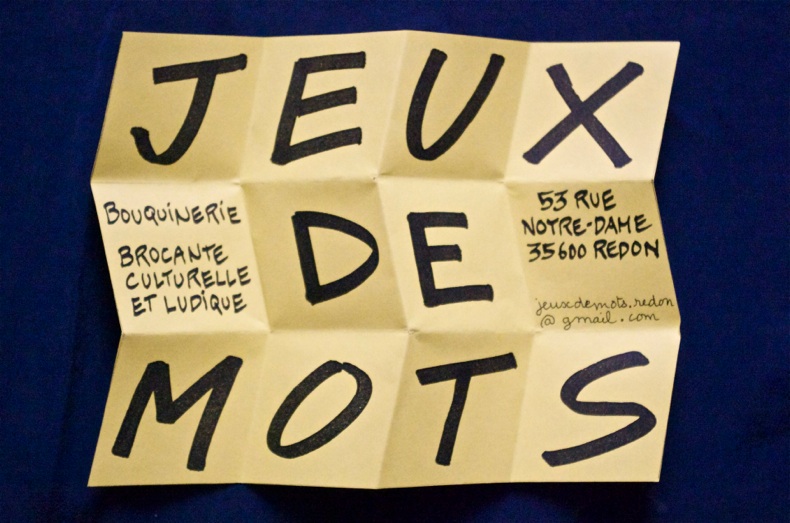 JEUX
BOUQUINERIE
BROCANTE
CULTURELLE
ET LUDIQUE
DE
53 RUE
NOTRE-DAME
35600 REDON
jeuxdemots.redon
@gmail.com
MOTS